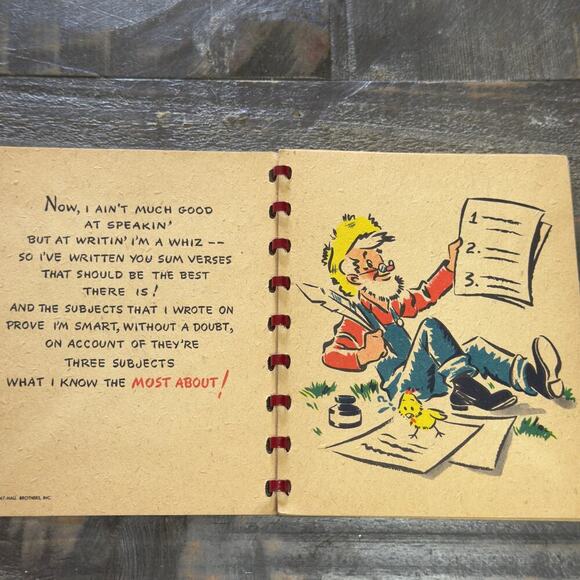 Now, I AIN'T MUCH GOOD
AT SPEAKIN'
BUT AT WRITIN' I'M A WHIZ --
SO I'VE WRITTEN YOU SUM VERSES
THAT SHOULD BE THE BEST
THERE IS!
AND THE SUBJECTS THAT I WROTE ON
PROVE I'M SMART, WITHOUT A DOUBT,
ON ACCOUNT OF THEY'RE
THREE SUBJECTS
WHAT I KNOW THE MOST ABOUT!
47-HALL BROTHERS, INC.
1.
2.
3.